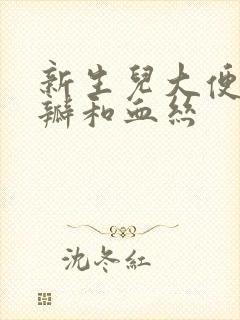 新生兒大便
瓣和血絲
沈冬紅